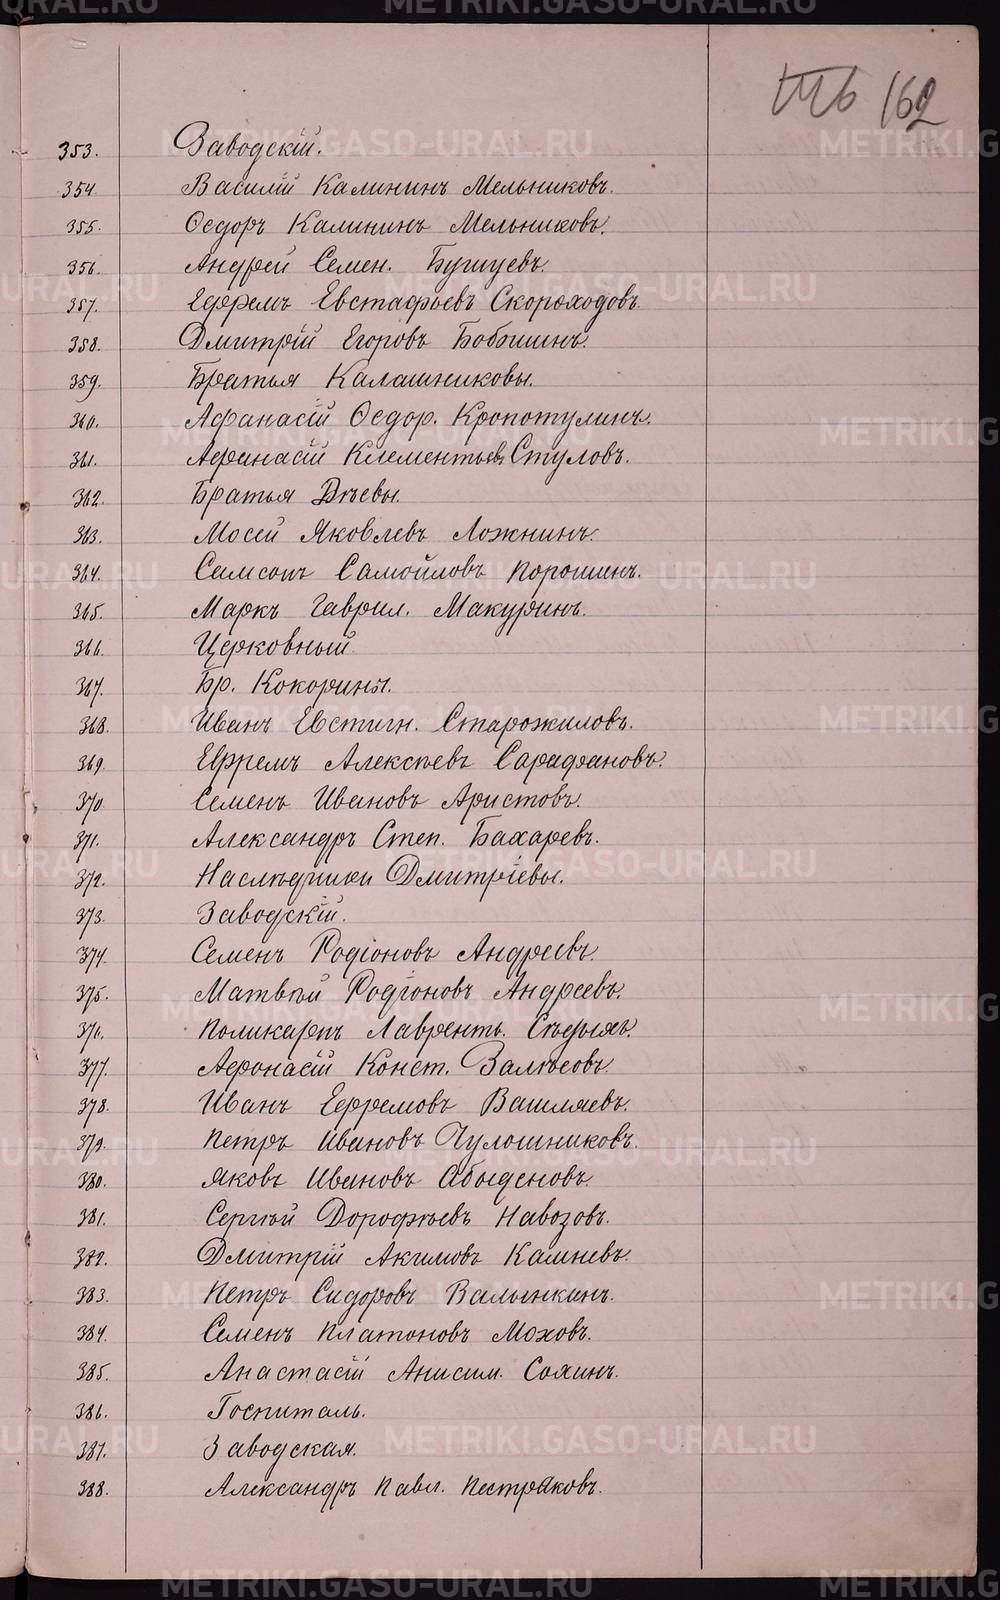 162
353. Заводскій.
354. Василій Калининъ Мельниковъ.
355. Ѳедоръ Калининъ Мельниковъ.
356. Андрей Семен. Бушуевъ.
357. Ефремъ Евстафьевъ Скороходовъ.
358. Дмитрій Егоровъ Бобошинъ.
359. Братья Калашниковы.
360. Афанасій Ѳедор. Кропотулинъ.
361. Афанасій Клементьев Стуловъ.
362. Братья
363. Мосей Яковлевъ Ложнинъ.
364. Самсонъ Самойловъ Порошинъ.
365. Маркъ Гаврил. Макуринъ.
366. Церковный.
367. Бр. Кокорины.
368. Иванъ Евстигн. Старожиловъ.
369. Ефремъ Алексѣевъ Сарафановъ.
370. Семенъ Ивановъ Аристовъ.
371. Александръ Степ. Бахаревъ.
372. Наслѣдники Дмитріевы.
373. Заводскій.
374. Семенъ Родіоновъ Андреевъ.
375. Матвѣй Родіоновъ Андреевъ.
376. Поликарпъ Лавренть. Сѣдыхъ.
377. Афонасій Конст.
378. Иванъ Ефремовъ Вашляевъ.
379. Петръ Ивановъ Чулошниковъ.
380. Яковъ Ивановъ Абыденовъ.
381. Сергѣй Дорофѣевъ Навозовъ.
382. Дмитрій Акимовъ Камневъ.
383. Петръ Сидоровъ Валынкинъ.
384. Семенъ Платоновъ Моховъ.
385. Анастасій Анисим. Сохинъ.
386. Госпиталь.
387. Заводская.
388. Александръ Павл. Пестряковъ.
METRIKI.GASO-URAL.RU